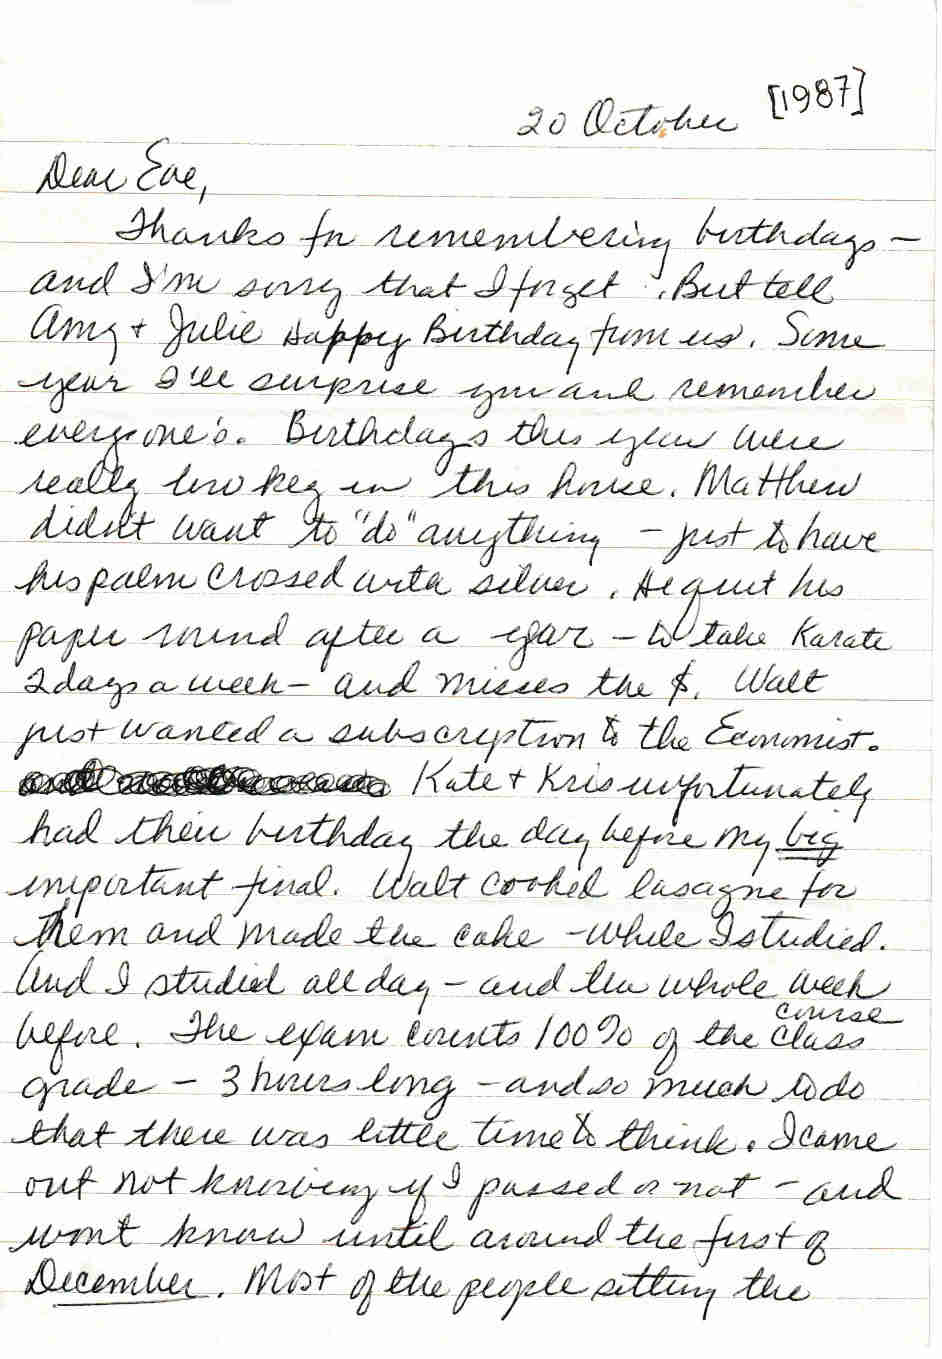 20 October [1987]
Dear Eve,
Thanks for remembering birthdays –
and I'm sorry that I forget. But tell
Amy + Julie Happy Birthday from us. Some
year I'll surprise you and remember
everyone's. Birthdays this year were
really low key in this house. Matthew
didn't want to "do" anything – just to have
his palm crossed with silver. He quit his
paper round after a year – to take Karate
2 days a week – and misses the $. Walt
just wanted a subscription to the Economist.
Kate + Kris unfortunately
had their birthday the day before my big
important final. Walt cooked lasagne for
them and made the cake – while I studied.
And I studied all day – and the whole week
course
before. The exam counts 100% of the class
grade – 3 hours long – and so much to do
that there was little time to think. I came
out not knowing if I passed or not – and
wont know until around the first of
December. Most of the people sitting the